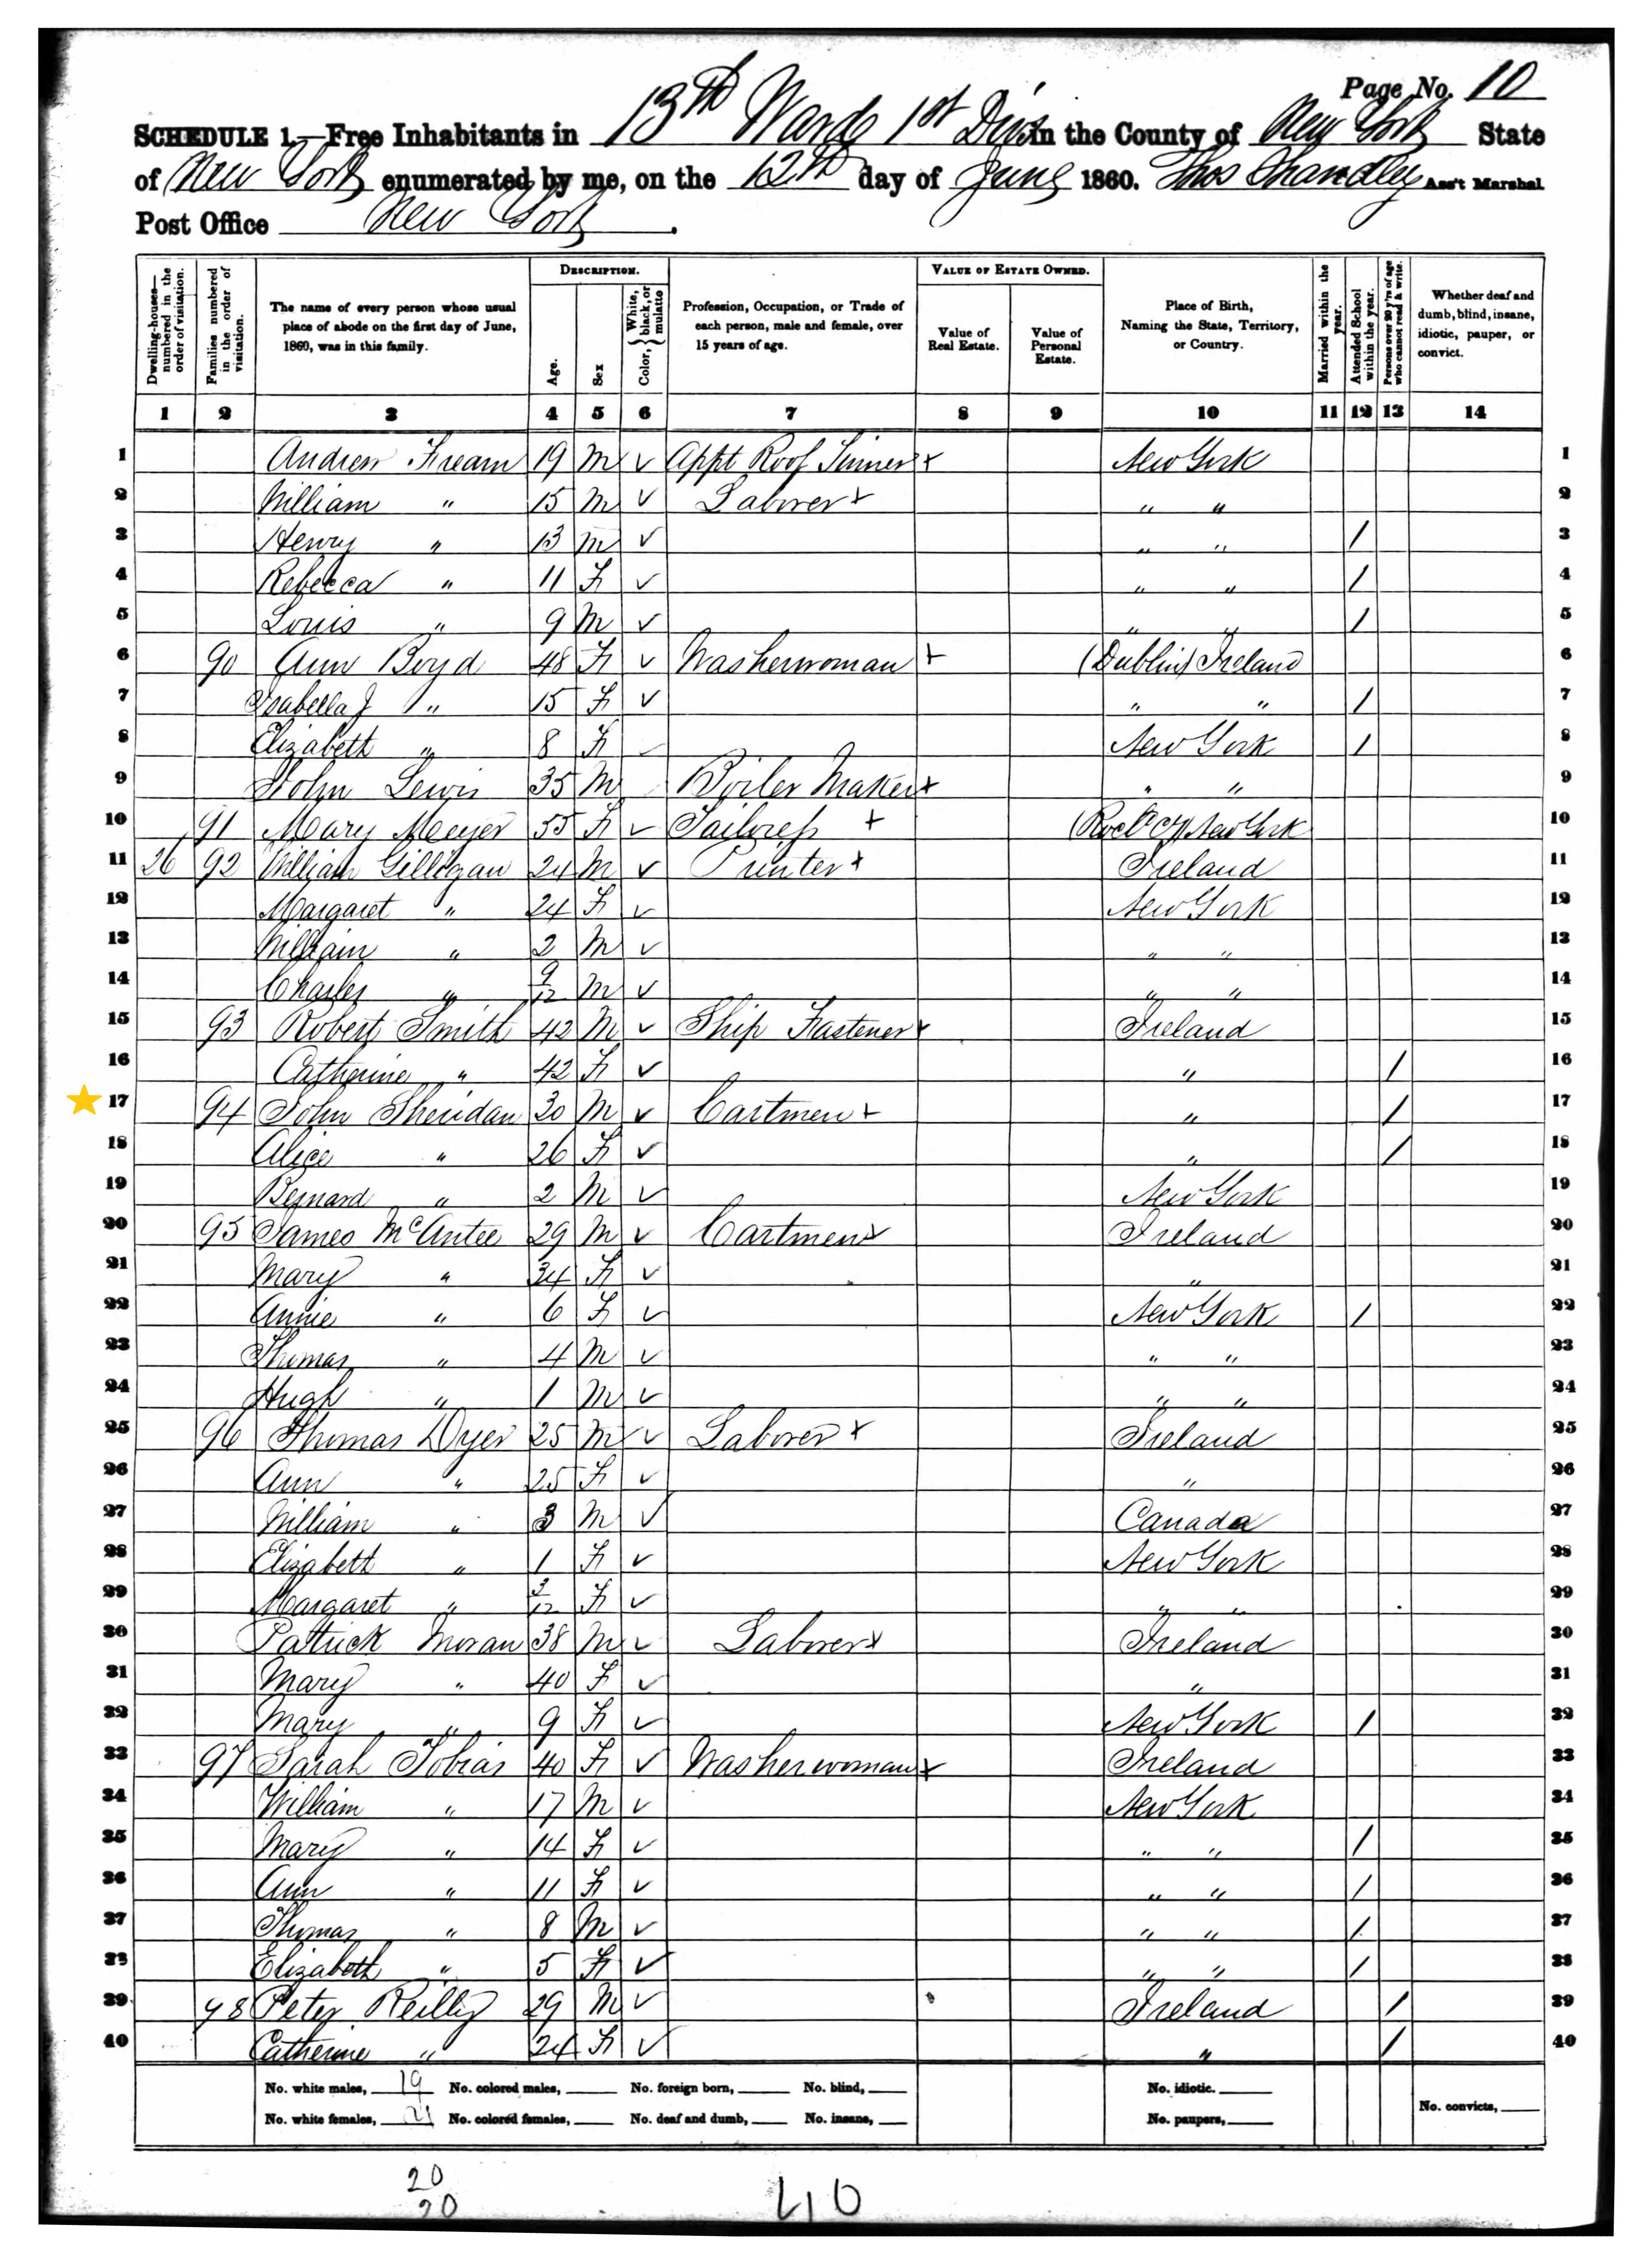 Page No. 10
SCHEDULE 1.—Free Inhabitants in 13th Ward 1st Divis in the County of New York State
of New York enumerated by me, on the 12th day of June 1860. Thos Chandley Ass't Marshal
Post Office New York.
Dwelling-houses—numbered in the order of visitation.
Families numbered in the order of visitation.
The name of every person whose usual place of abode on the first day of June, 1860, was in this family.
DESCRIPTION.
Age.
Sex
Color, { White, black, or mulatto
Profession, Occupation, or Trade of each person, male and female, over 15 years of age.
VALUE OF ESTATE OWNED.
Value of Real Estate.
Value of Personal Estate.
Place of Birth, Naming the State, Territory, or Country.
Married within the year.
Attended School within the year.
Persons over 20 y'rs of age who cannot read & write.
Whether deaf and dumb, blind, insane, idiotic, pauper, or convict.
1 2 3 4 5 6 7 8 9 10 11 12 13 14
1 Andrew Fream 19 M ✓ Appt Roof Tinner + New York 1
2 William " 15 M ✓ Laborer + " " 2
3 Henry " 13 M ✓ " " / 3
4 Rebecca " 11 F ✓ " " / 4
5 Louis " 9 M ✓ " " / 5
6 90 Ann Boyd 48 F ✓ Washerwoman + (Dublin) Ireland 6
7 Isabella J " 15 F ✓ " " / 7
8 Elizabeth " 8 F ✓ New York / 8
9 John Lewis 35 M Boiler Maker + " " 9
10 91 Mary Meyer 55 F ✓ Tailoress + New York 10
11 26 92 William Gilligan 24 M ✓ Printer + Ireland 11
12 Margaret " 24 F ✓ New York 12
13 William " 2 M ✓ " " 13
14 Charles " 9/12 M ✓ " " 14
15 93 Robert Smith 42 M ✓ Ship Fastener + Ireland 15
16 Catherine " 42 F ✓ " / 16
17 94 John Sheridan 30 M ✓ Cartmen + " / 17
18 Alice " 26 F ✓ " / 18
19 Bernard " 2 M ✓ New York 19
20 95 James McAntee 29 M ✓ Cartmen + Ireland 20
21 Mary " 34 F ✓ " 21
22 Annie " 6 F ✓ New York / 22
23 Thomas " 4 M ✓ " " 23
24 Hugh " 1 M ✓ " " 24
25 96 Thomas Dyer 25 M ✓ Laborer + Ireland 25
26 Ann " 25 F ✓ " 26
27 William " 3 M ✓ Canada 27
28 Elizabeth " 1 F ✓ New York 28
29 Margaret " 3/12 F ✓ " " 29
30 Patrick Moran 38 M ✓ Laborer + Ireland 30
31 Mary " 40 F ✓ " 31
32 Mary " 9 F ✓ New York / 32
33 97 Sarah Tobias 40 F ✓ Washerwoman + Ireland 33
34 William " 17 M ✓ New York 34
35 Mary " 14 F ✓ " " / 35
36 Ann " 11 F ✓ " " / 36
37 Thomas " 8 M ✓ " " / 37
38 Elizabeth " 5 F ✓ " " / 38
39 98 Peter Reilly 29 M ✓ Ireland / 39
40 Catherine " 24 F ✓ " / 40
No. white males, 19 No. colored males, No. foreign born, No. blind, No. idiotic.
No. white females, 21 No. colored females, No. deaf and dumb, No. insane, No. paupers, No. convicts,
20
20
40